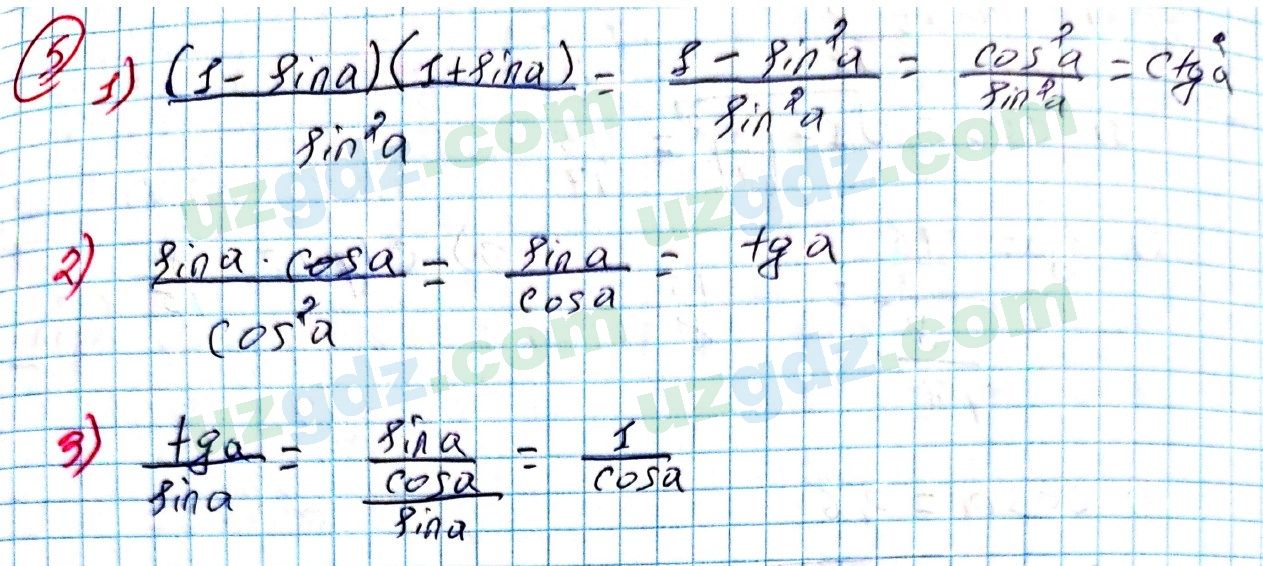 5
1) (1 - sin a)(1 + sin a) / sin²a = 1 - sin²a / sin²a = cos²a / sin²a = ctg²a
2) sin a · cos a / cos²a = sin a / cos a = tg a
3) tg a / sin a = sin a / cos a / sin a = 1 / cos a
uzgdz.com
uzgdz.com
uzgdz.com
uzgdz.com